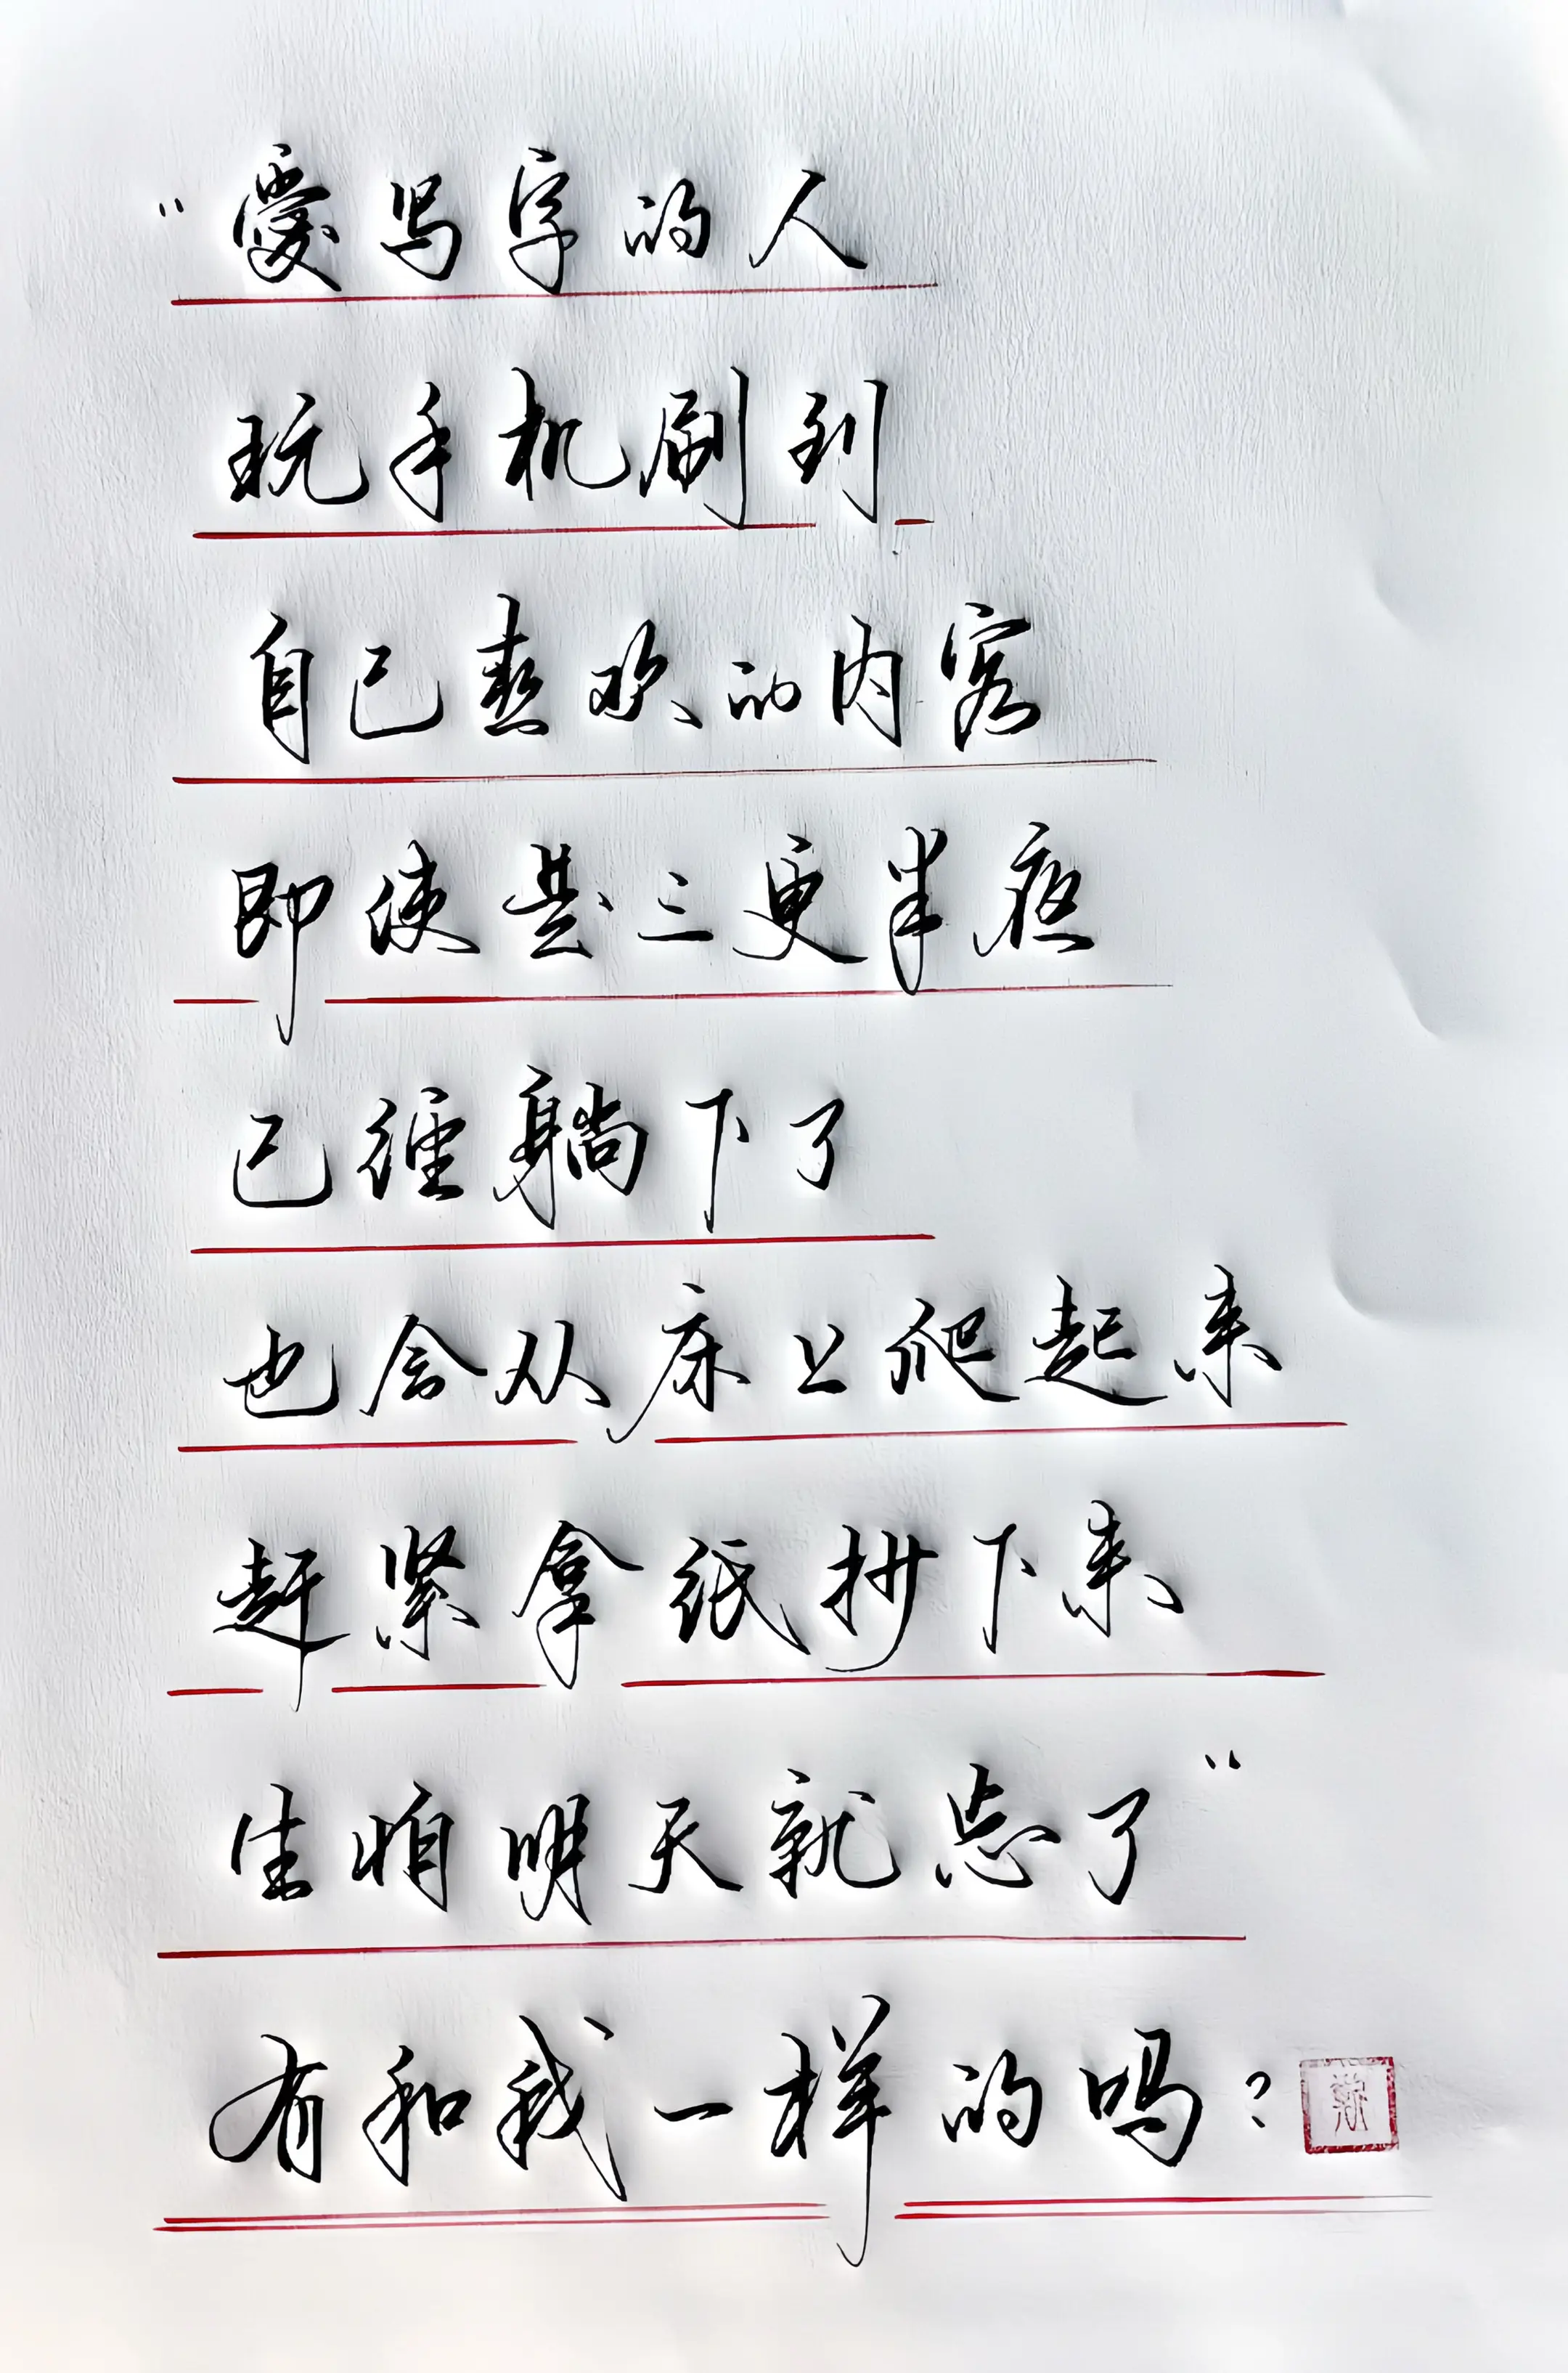 “愛写字的人
玩手机刷到
自己喜欢的内容
即使是三更半夜
已經躺下了
也会从床上爬起来
赶紧拿纸抄下来
生怕明天就忘了”
有和我一样的吗？